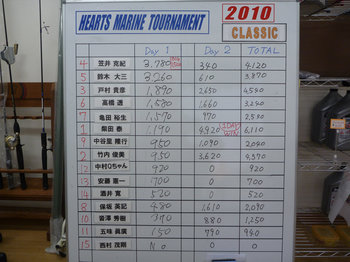 HEARTS MARINE TOURNAMENT
2010
CLASSIC
Day 1 Day 2 TOTAL
4 笠井 克紀 3,780 340 4120
5 鈴木 大三 3,260 610 3,870
3 戸村 貴彦 1,890 2,650 4,540
6 高橋 透 1,580 1,660 3,240
7 亀田 裕生 1,570 970 2,540
1 柴田 泰 1,190 4,920 6,110
9 中谷里 隆行 950 1,090 2,040
2 竹内 俊美 950 3,620 4,570
12 中村Qちゃん 920 0 920
13 安藤 憲一 700 0 700
14 酒井 寛 520 0 520
8 保坂 英記 480 1,610 2,090
10 菅澤 秀樹 370 880 1,250
11 五味 眞廣 150 790 940
15 西村 茂剛 No 0 0